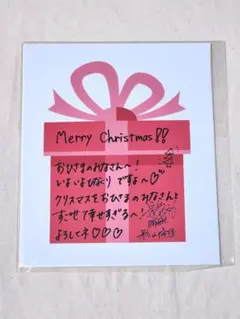 Merry Christmas!!
おひさまのみなさんへ!
いよいよひなくり ですよ〜♡
クリスマスをおひさまのみなさんと
すごせて幸せすぎる〜!
よろしくネ♡♡♡